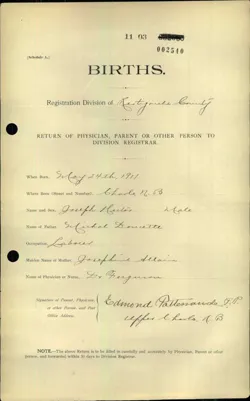 11 03
002540
BIRTHS.
Registration Division of Restigouche County
RETURN OF PHYSICIAN, PARENT OR OTHER PERSON TO
DIVISION REGISTRAR.
When Born, May 24th 1911
Where Born (Street and Number) Charlo N B
Name and Sex, Joseph Male
Name of Father, Michel Doucette
Occupation, Laborer
Maiden Name of Mother, Josephine
Name of Physician or Nurse, Dr Ferguson
Signature of Parent, Physician
or other Person and Post
Office Address. Edmond J.P.
Upper Charlo N B
NOTE.—The above Return is to be filled in carefully and accurately by Physician, Parent or other
Person, and forwarded within days to Division Registrar.